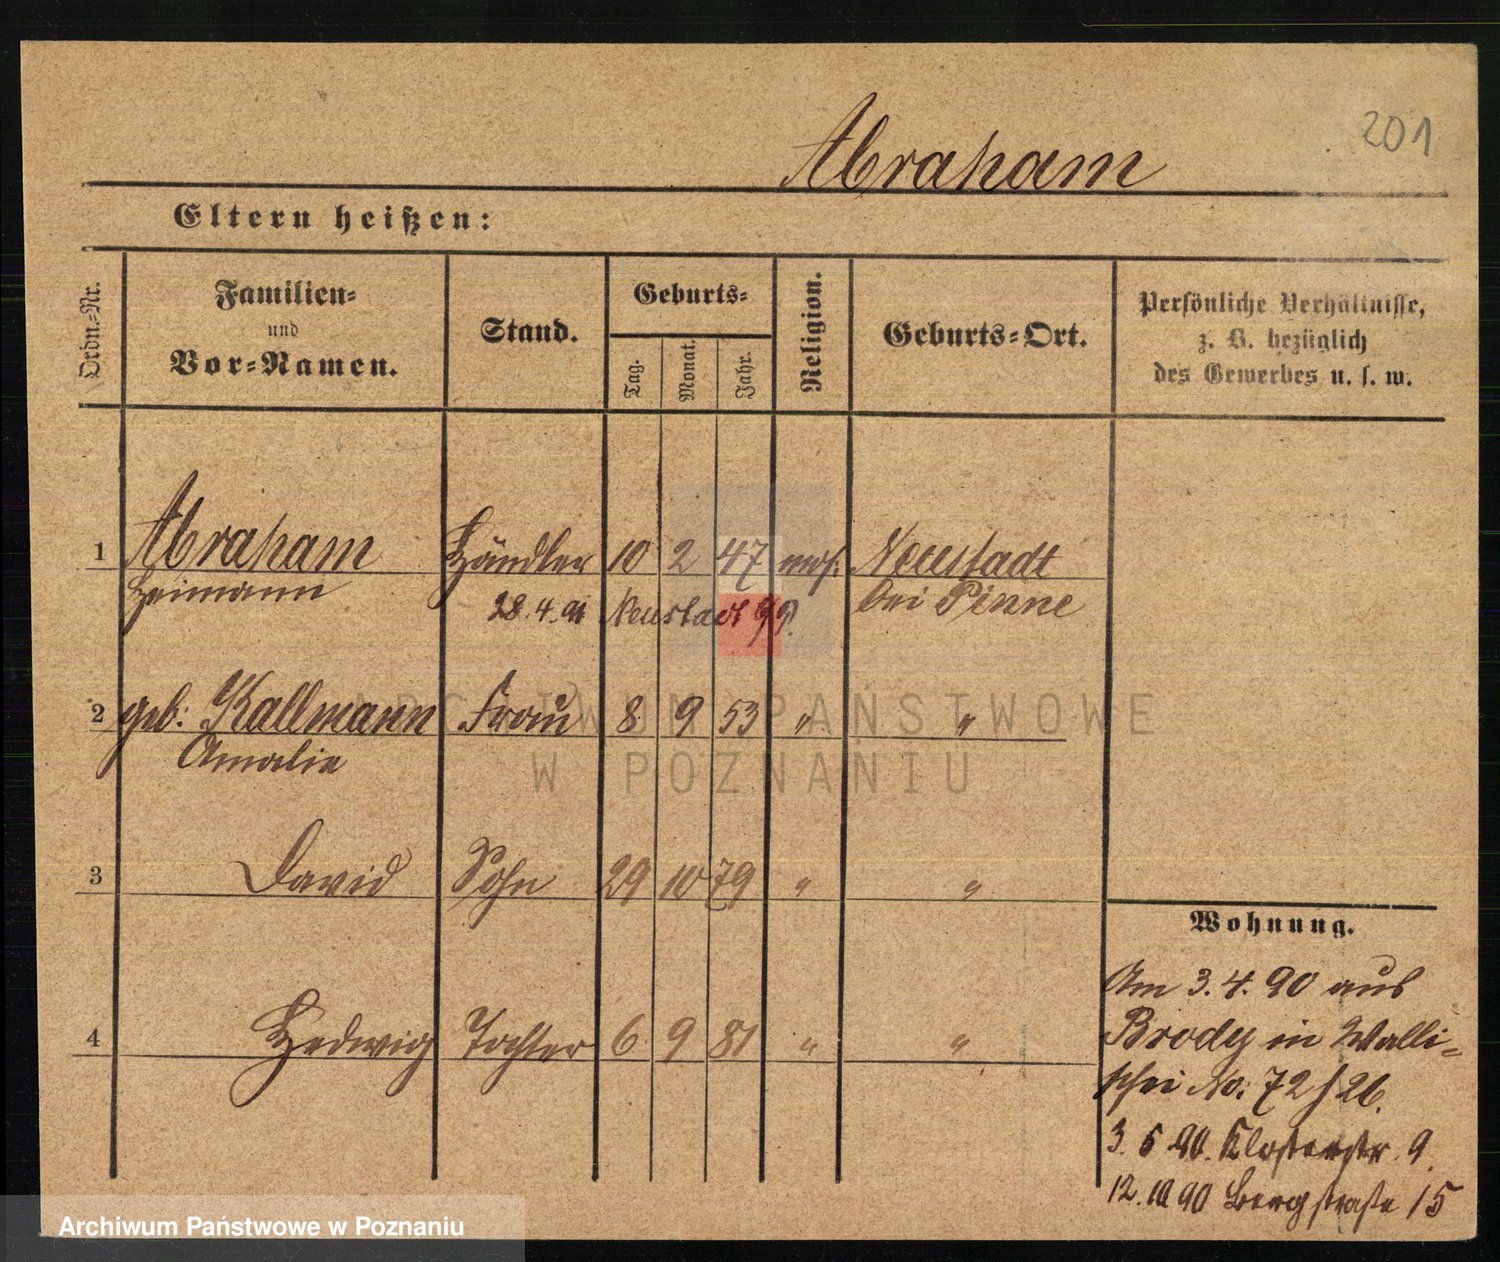 201
Abraham
Eltern heißen:
Ordn.-Nr.
Familien-
und
Vor-Namen.
Stand.
Geburts-
Tag.
Monat.
Jahr.
Religion.
Geburts-Ort.
Persönliche Verhältnisse,
z. B. bezüglich
des Gewerbes u. s. w.
1 Abraham Händler 10 2 47 mos. Neustadt
Heimann 28.4.91 Neustadt bei Pinne
2 geb: Kallmann Frau 8 9 53 " "
Amalie
3 David Sohn 29 10 79 " "
4 Hedwig Tochter 6 9 81 " "
Wohnung.
Am 3.4.90 aus
Brody in Walli-
schei No: 72/26.
3.5.90. Klosterstr. 9.
12.10.90 Bergstraße 15
ARCHIWUM PAŃSTWOWE
W POZNANIU
Archiwum Państwowe w Poznaniu